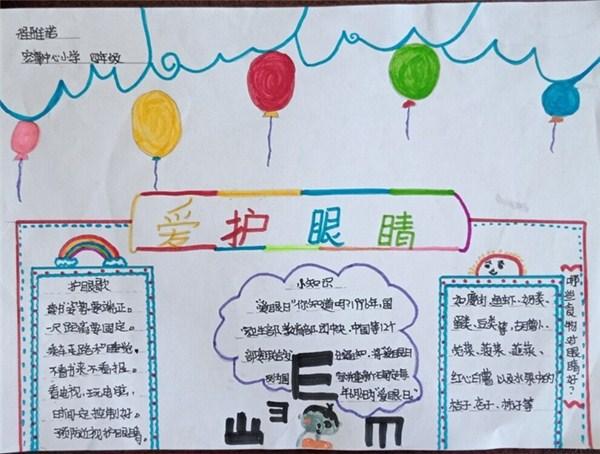 宏擎中心小学 四年级
爱护眼睛
护眼歌
读书姿势要端正。
一尺距离要固定。
乘车走路不睡觉，
不看书来不看报。
看电视，玩电脑，
时间一定控制好。
预防近视护眼睛。
小知识
"爱眼日"你知道吗？1996年，国
家卫生部、教育部、团中央、中国等12个
部委联合
出通知，将爱眼日
列为国
年6月6日为"爱眼日"
哪些食物对眼睛好？
如瘦肉、鱼虾、奶类、
蛋类、豆类等，在萝卜、
红心白薯以及水果中的
桔子、杏子、柿子等